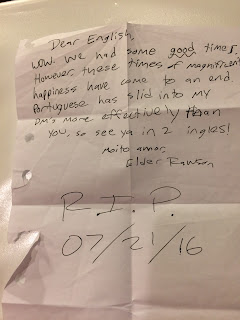 Dear English,
wow we had some good times.
However, these times of magnificent
happiness have come to an end.
Portuguese has slid into my
DMs more effectively than
you, so see ya in 2 ingles!
Moito amor,
Elder Rawson
R.I.P.
07/21/16